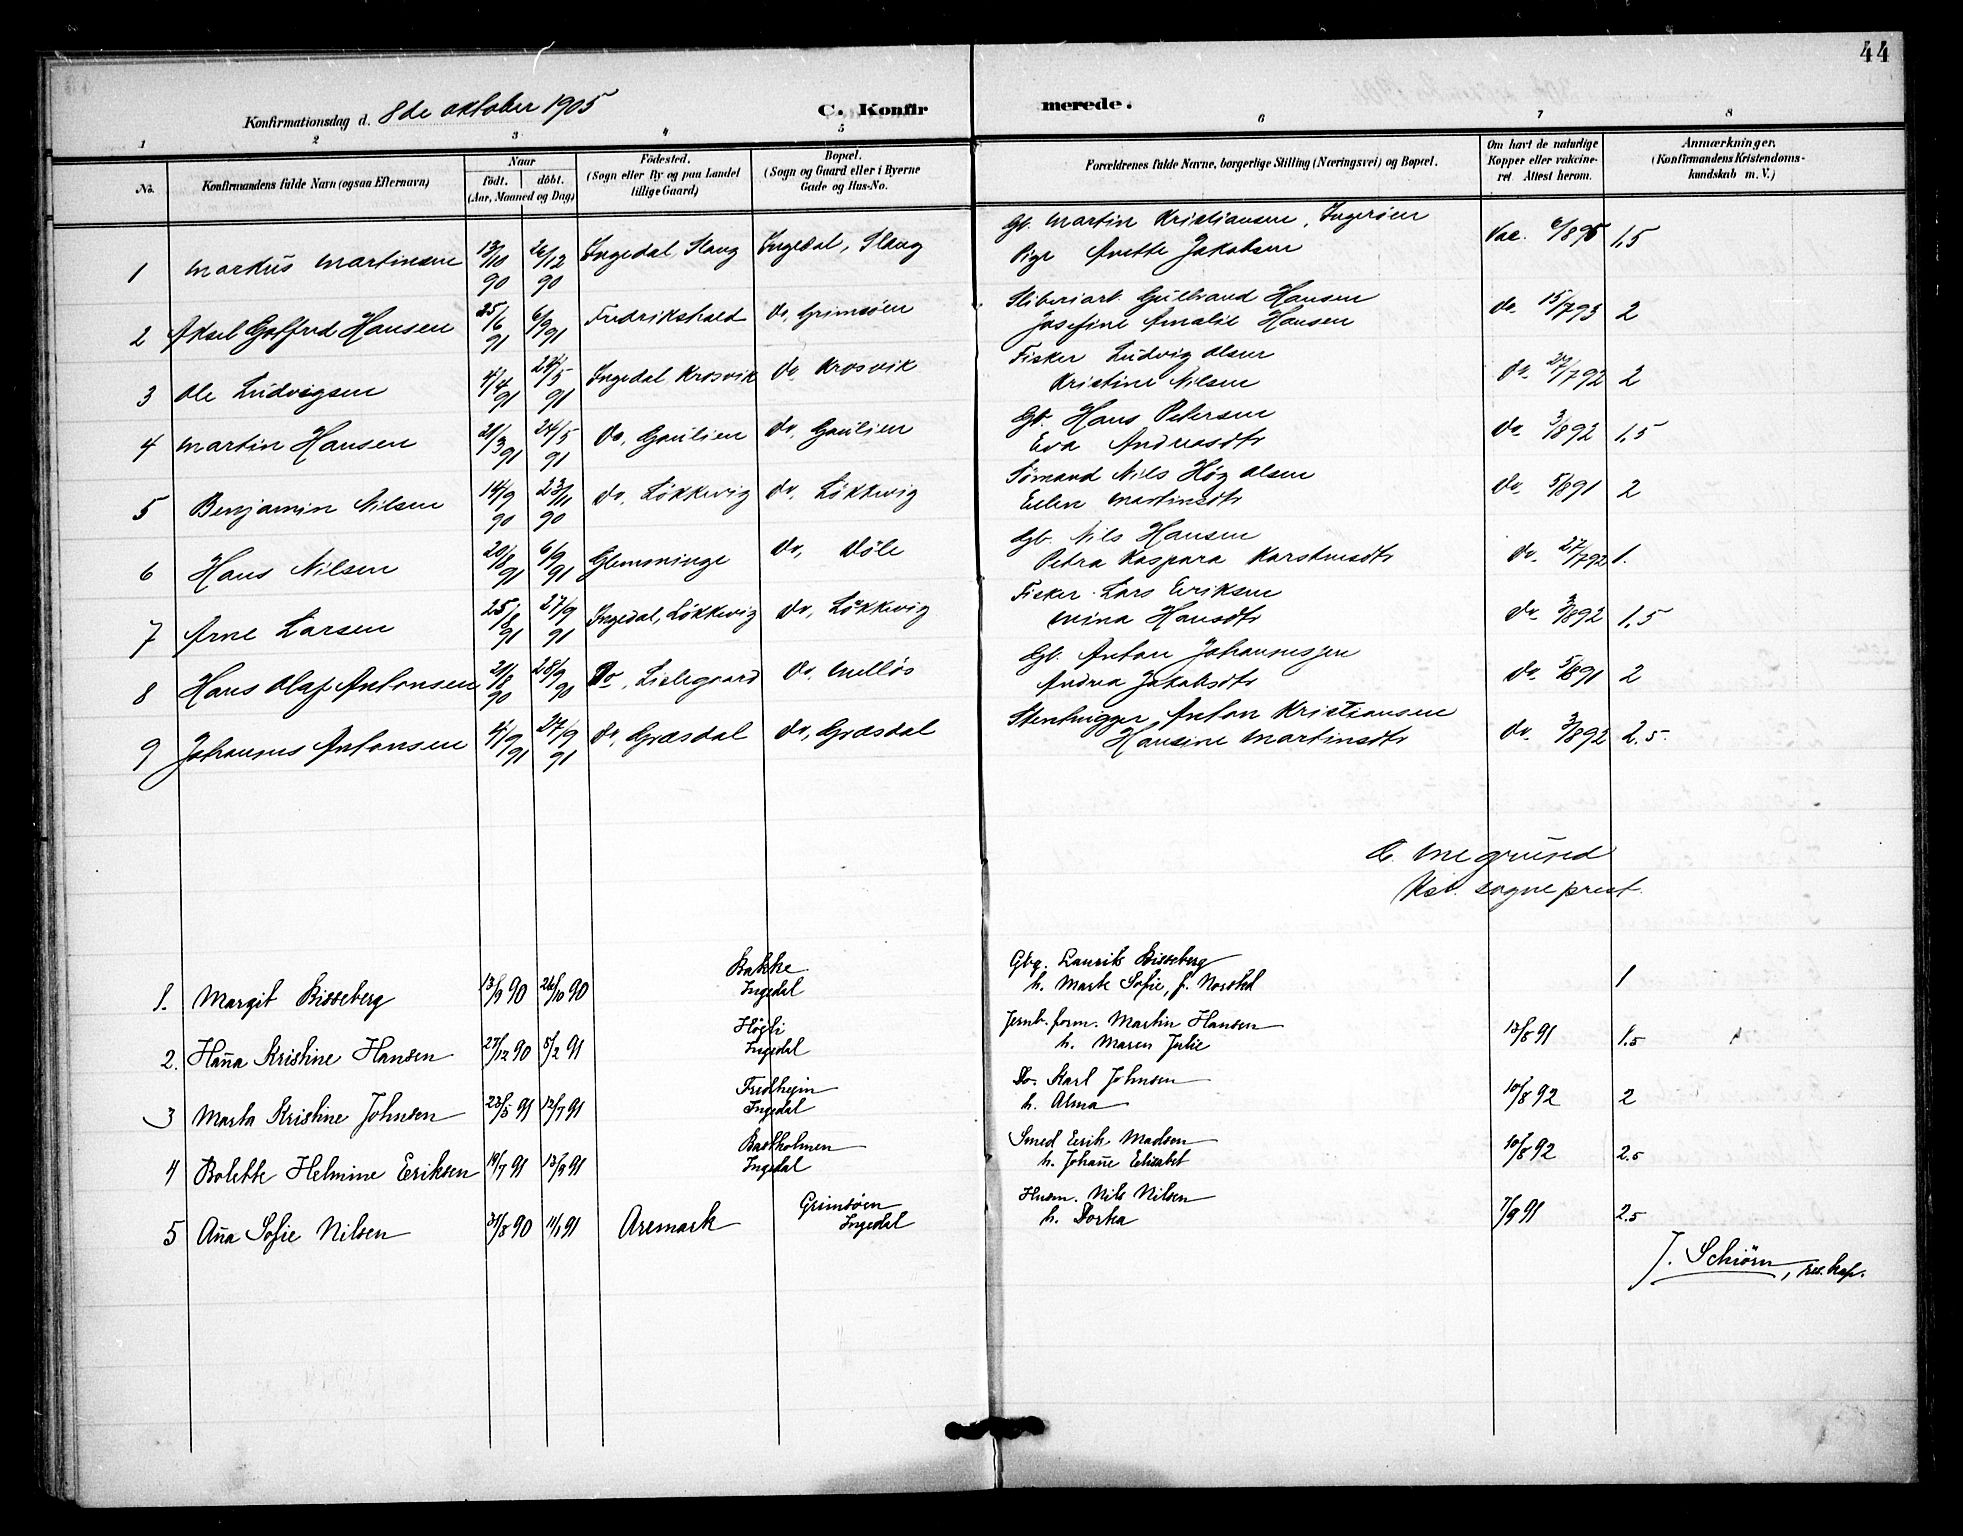 44
Konfirmationsdag d. 8de oktober 1905 C. Konfirmerede.
1 2 3 4 5 6 7 8
No. Konfirmandens fulde Navn (ogsaa Efternavn) Naar født. døbt. (Aar, Maaned og Dag) Fødested. (Sogn eller By og paa Landet tillige Gaard) Bopæl. (Sogn og Gaard eller i Byerne Gade og Hus-No. Forældrenes fulde Navne, borgerlige Stilling (Næringsvei) og Bopæl. Om havt de naturlige Kopper eller vakcineret. Attest herom. Anmærkninger. (Konfirmandens Kristendomskundskab m. V.)
1 Markus Martinsen 13/10 90 26/12 90 Ingedal, Slang Ingedal, Slang Gb. Martin Kristiansen, Ingerøen
Pige Anette Jakobsen Vac. 6/895 1,5
2 Aksel Gotfred Hansen 25/6 91 6/9 91 Fredrikshald Do, Grimsøen Sliberiarb. Gulbrand Hansen
Josefine Amalie Hansen do. 15/793 2
3 Ole Ludvigsen 4/4 91 24/5 91 Ingedal Krosvik Do Krosvik Fisker Ludvig Olsen
Kristine Nilsen do. 27/792 2
4 Martin Hansen 21/3 91 24/5 91 Do, Gaulien do, Gaulien Gb. Hans Petersen
Eva Andreasdtr do. 3/892 1,5
5 Benjamin Nilsen 14/9 90 23/11 90 do, Løkkevig do, Løkkevig Sømand Nils Høg Olsen
Elen Martinsdtr do. 5/891 2
6 Hans Nilsen 20/8 91 6/9 91 Glemminge Do, Døle Gb. Nils Hansen
Petra Kaspara Karstensdtr do. 27/792 1.
7 Arne Larsen 25/8 91 27/9 91 Ingedal, Løkkevig do, Løkkevig Fisker Lars Eriksen
Mina Hansdtr do. 3/892 1,5
8 Hans Olaf Antonsen 21/8 90 28/9 90 Do, Lislegaard Do, Melløs Gb. Anton Johannesen
Andrea Jakobsdtr do. 5/891 2
9 Johannes Antonsen 4/9 91 27/9 91 do, Græsdal do, Græsdal Stenhugger Anton Kristiansen
Hansine Martinsdtr do. 3/892 2.5
Kst. sogneprest.
1. Margit Bisseberg 13/9 90 26/10 90 Bakke Ingedal Gbg. Laurits Bisseberg
h. Marte Sofie, f. Norsted 1
2. Hana Kristine Hansen 27/12 90 8/2 91 Høgli Ingedal Jernb. form. Martin Hansen
h. Maren Julie 13/8 91 1.5
3 Marta Kristine Johnsen 23/5 91 12/7 91 Fredheim Ingedal Do. Karl Johnsen
h. Alma 10/8 92 2
4 Bolette Helmine Eriksen 19/7 91 13/9 91 Bastholmen Ingedal Smed Eerik Madsen
h. Johane Elisabet 10/8 92 2.5
5 Ana Sofie Nilsen 31/8 90 11/1 91 Aremark Grimsøen Ingedal Husm. Nils Nilsen
h. Dorka 7/9 91 2.5
J. Schiørn, res. kap.